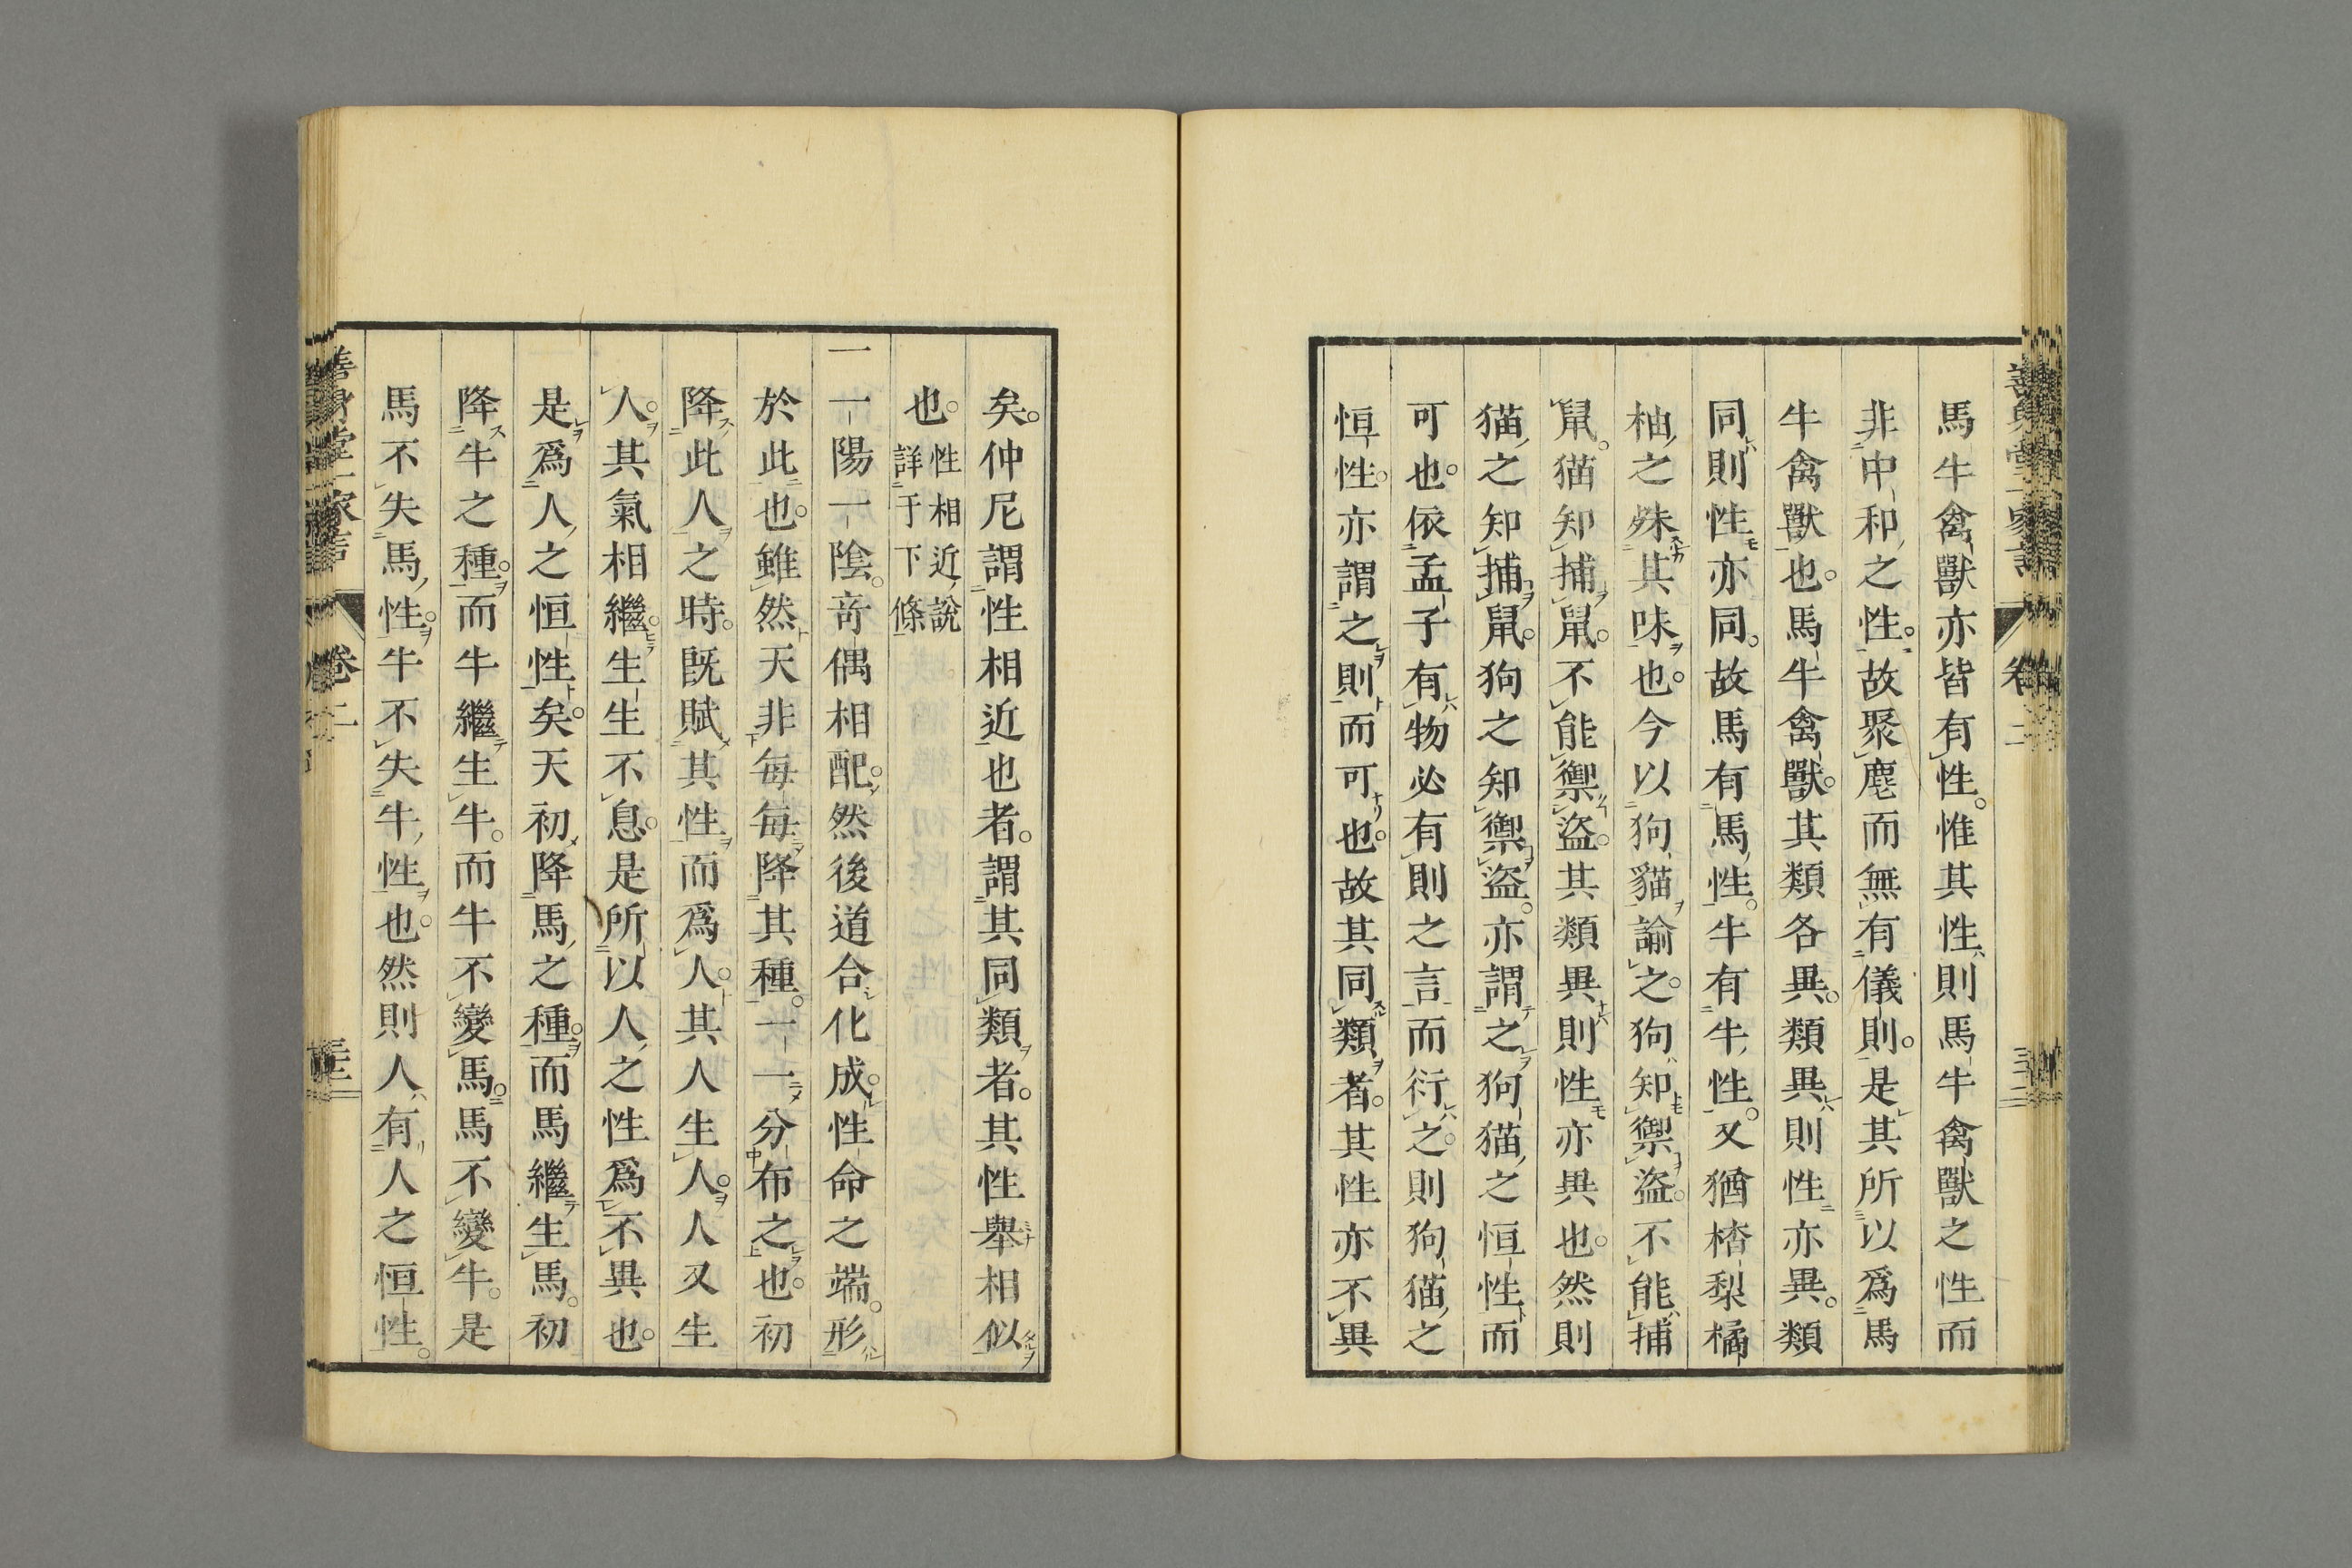 馬牛禽獸亦皆有性。惟其性則馬牛禽獸之性而
非中和之性。故聚麀而無有儀則。是其所以爲馬
牛禽獸也。馬牛禽獸。其類各異。類異則性亦異。類
同則性亦同。故馬有馬性。牛有牛性。又猶樝梨橘
柚之殊其味也。今以狗貓諭之。狗知禦盜。不能捕
鼠。猫知捕鼠。不能禦盜。其類異則性亦異也。然則
猫之知捕鼠。狗之知禦盜。亦謂之狗猫之恒性而
可也。依孟子有物必有則之言而衍之。則狗猫之
恒性。亦謂之則而可也。故其同類者。其性亦不異
矣。仲尼謂性相近也者。謂其同類者。其性舉相似
也。性相近說
詳于下條
一一陽一陰。奇偶相配。然後道合化成。性命之端。形
於此也。雖然天非每每降其種。一一分布之也。初
降此人之時。既賦其性而爲人。其人生人。人又生
人。其氣相繼。生生不息。是所以人之性爲不異也。
是爲人之恒性矣。天初降馬之種。而馬繼生馬。初
降牛之種。而牛繼生牛。而牛不變馬。馬不變牛。是
馬不失馬性。牛不失牛性也。然則人有人之恒性。
卷二